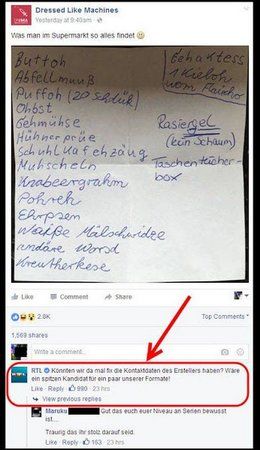 Dressed Like Machines
Yesterday at 9:40am
Was man im Supermarkt so alles findet
Buttoh
Abfellmuuß
Puffoh (20 Schlük)
Ohbst
Gehmühse
Hühnerprüe
Schuhlkafehzäug
Muhscheln
Knabeergrahm
Pohreh
Ehrpsen
Waiße Mälschwidee
undäre Worsd
Kreutherkese
Gehaktess
1 Kieloh
vom Flaischo
Rasiergel
(kein Schaum)
Taschentücher-
box
Like Comment Share
2.8K Top Comments
1,569 shares
Write a comment...
RTL Könnten wir da mal fix die Kontaktdaten des Erstellers haben? Wäre
ein spitzen Kandidat für ein paar unserer Formate!
Like · Reply · 990 · 23 hrs
View previous replies
Maruku Gut das euch euer Niveau an Serien bewusst
ist....
Traurig das ihr stolz darauf seid.
Like · Reply · 163 · 23 hrs